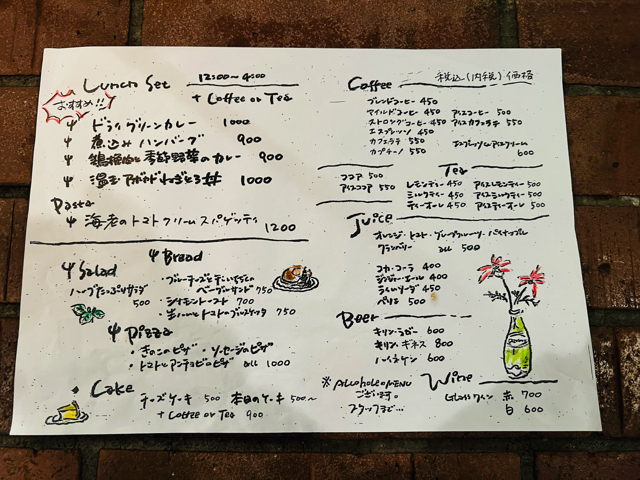 Lunch Set 12:00~4:00
おすすめ!! + Coffee or Tea
ドライグリーンカレー 1000
煮込みハンバーグ 900
季節野菜のカレー 900
温玉アボカドねぎとろ丼 1000
Pasta
海老のトマトクリームスパゲッティ 1200
Salad
ハーブたっぷりサラダ
500
Bread
ベーグルサンド 750
シナモントースト 700
生ハムとトマトのブルスケッタ 750
Pizza
・きのこのピザ ・ソーセージのピザ
・トマトとアンチョビのピザ all 1000
Cake
チーズケーキ 500 本日のケーキ 500~
+ Coffee or Tea 900
Coffee 税込(内税)価格
ブレンドコーヒー 450
マイルドコーヒー 450 アイスコーヒー 500
ストロングコーヒー 450 アイスカフェラテ 550
エスプレッソ 450
カフェラテ 550
カプチーノ 550 600
ココア 500
アイスココア 550
Tea
レモンティー 450 アイスレモンティー 500
ミルクティー 450 アイスミルクティー 500
ティーオーレ 500 アイスティーオーレ 550
Juice
オレンジ・トマト・グレープフルーツ・パイナップル
クランベリー all 500
コカ・コーラ 400
ジンジャーエール 400
ライムソーダ 450
ペリエ 500
Beer
キリンラガー 600
キリンギネス 800
ハイネケン 600
※ALCOHOLのMENU
ございます。
スタッフまで…
Wine
Glassワイン 赤 700
白 600